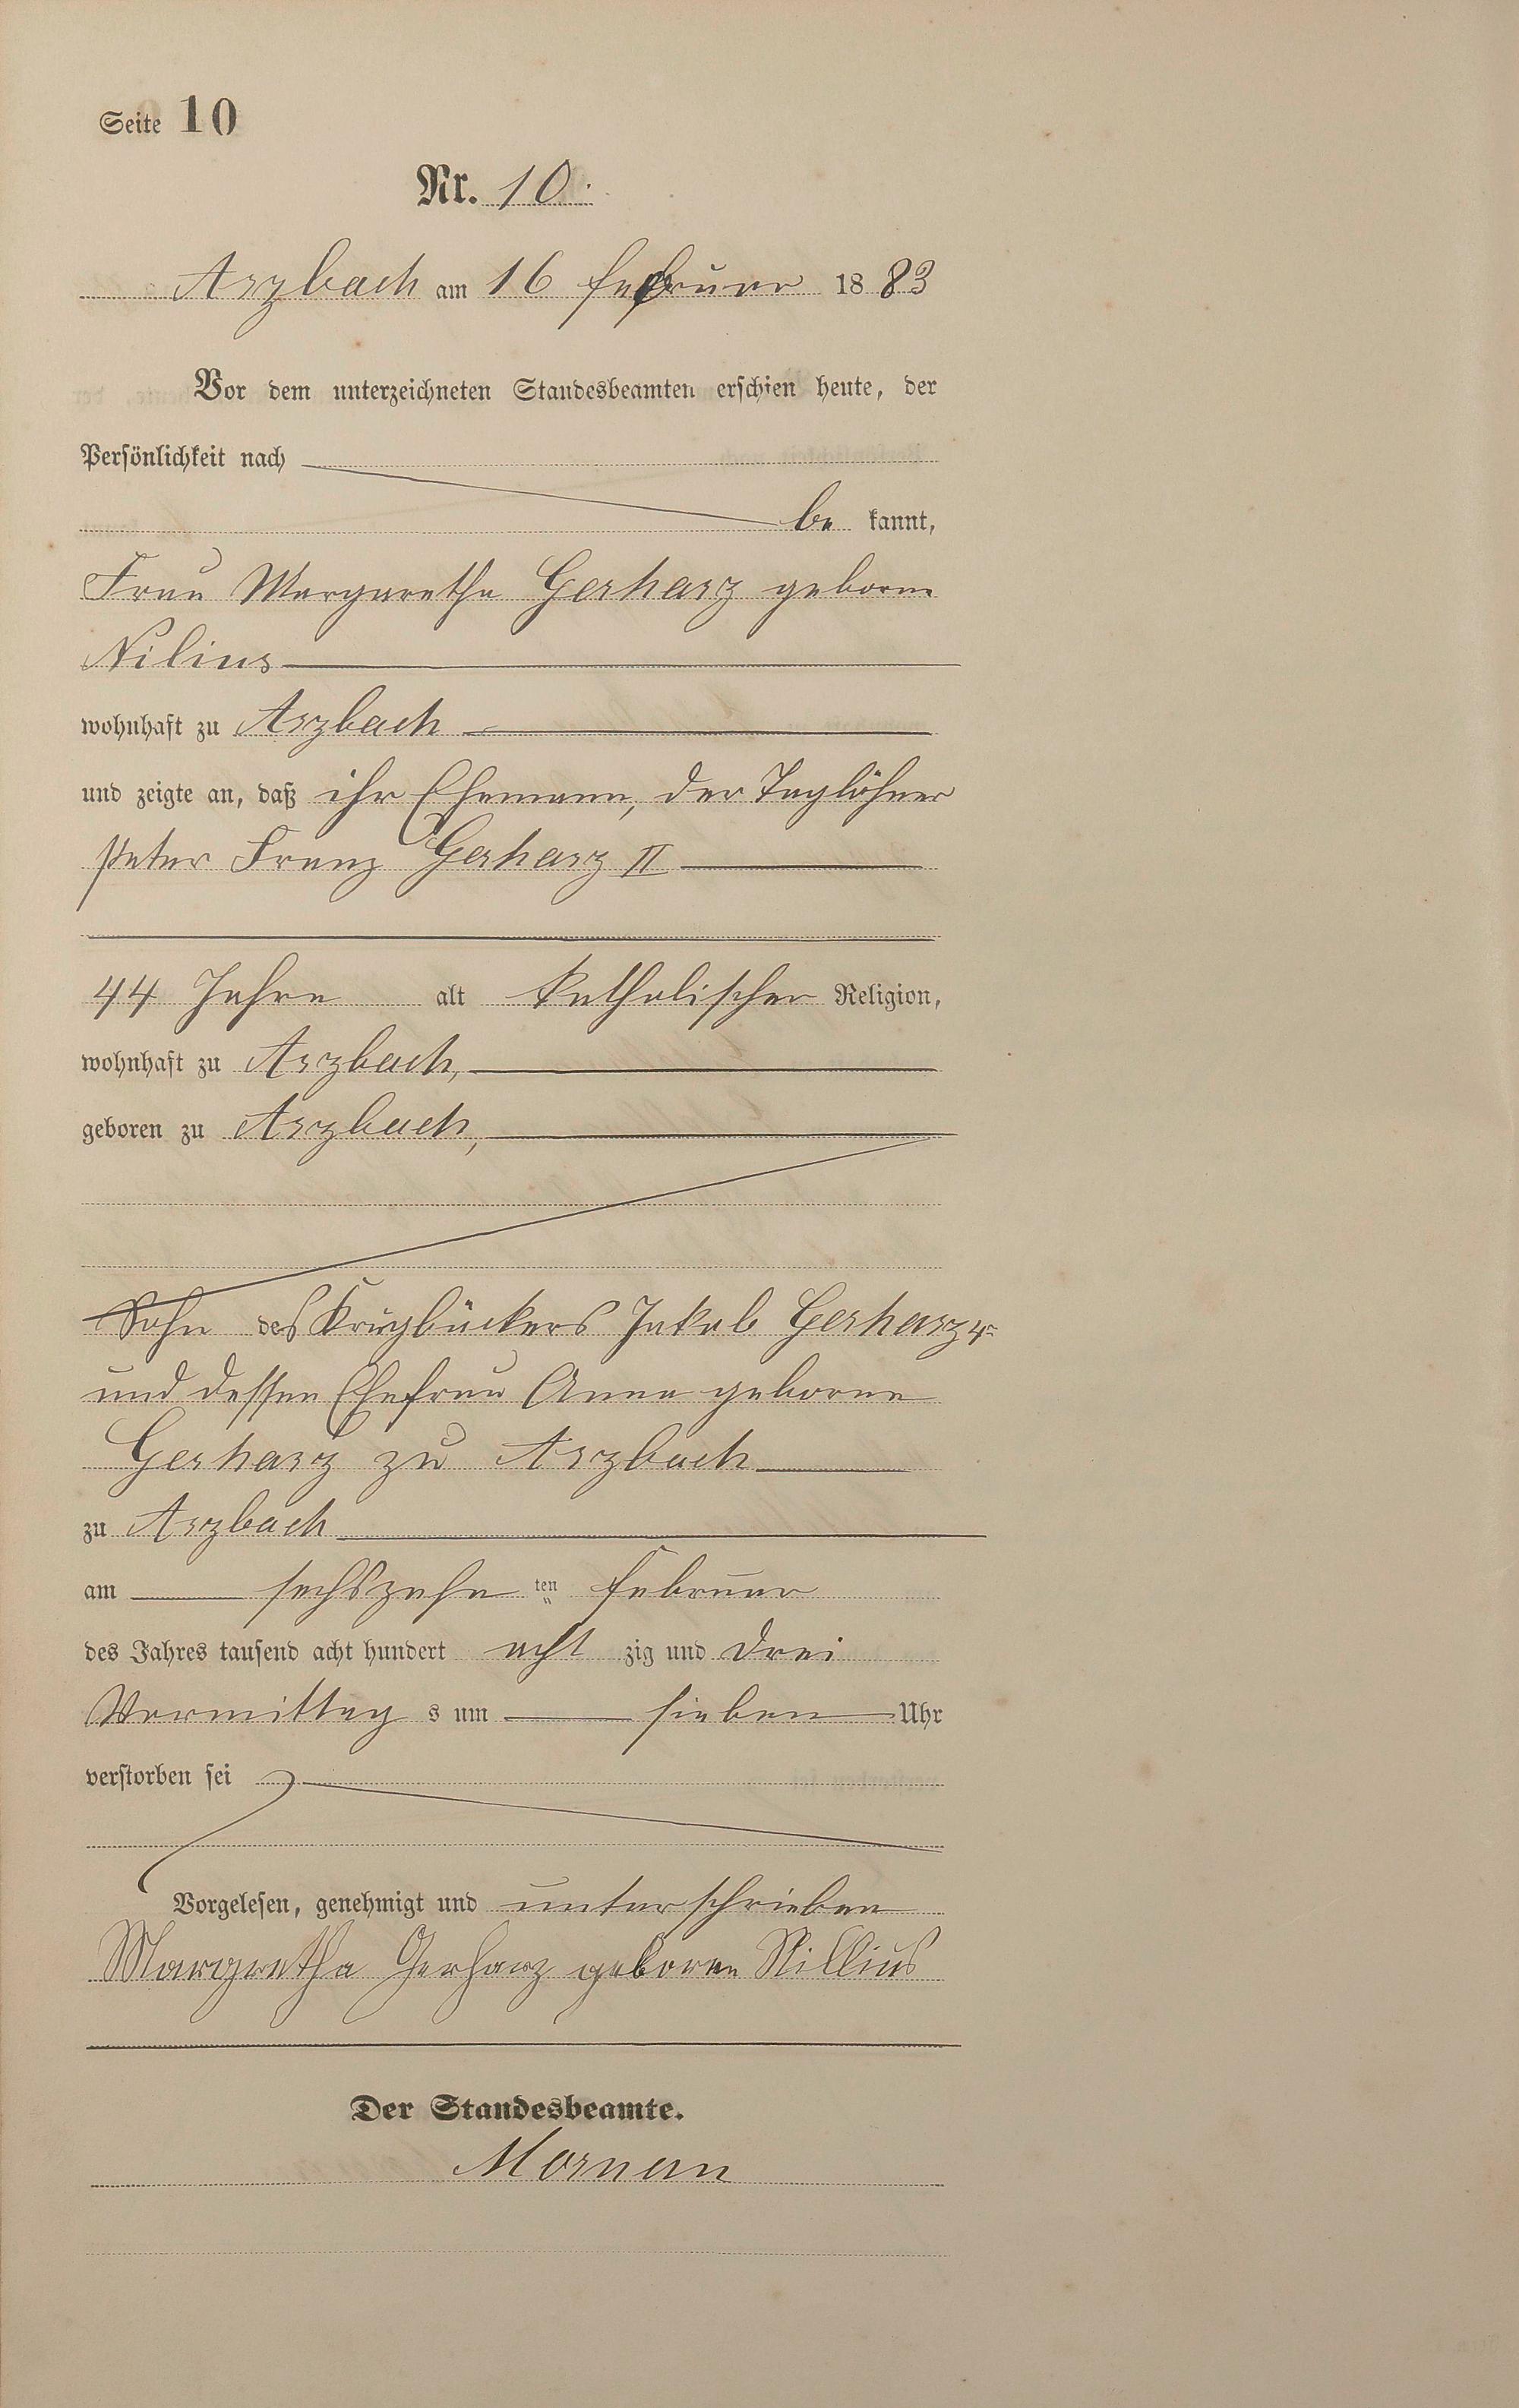 Seite 10
Nr. 10.
Arzbach am 16 Februar 1883
Vor dem unterzeichneten Standesbeamten erschien heute, der
Persönlichkeit nach
be kannt,
Frau Margaretha Gerharz geborne
Nilius
wohnhaft zu Arzbach
und zeigte an, daß ihr Ehemann, der Taglöhner
Peter Franz Gerharz II
44 Jahre alt katholischer Religion,
wohnhaft zu Arzbach,
geboren zu Arzbach,
Sohn des Krugbäckers Jakob Gerharz
und dessen Ehefrau Anna geborne
Gerharz zu Arzbach
zu Arzbach
am sechszehn ten Februar
des Jahres tausend acht hundert acht zig und drei
Vormittag s um sieben Uhr
verstorben sei
Vorgelesen, genehmigt und unterschrieben
Margretha Gerharz geboren Nillius
Der Standesbeamte.